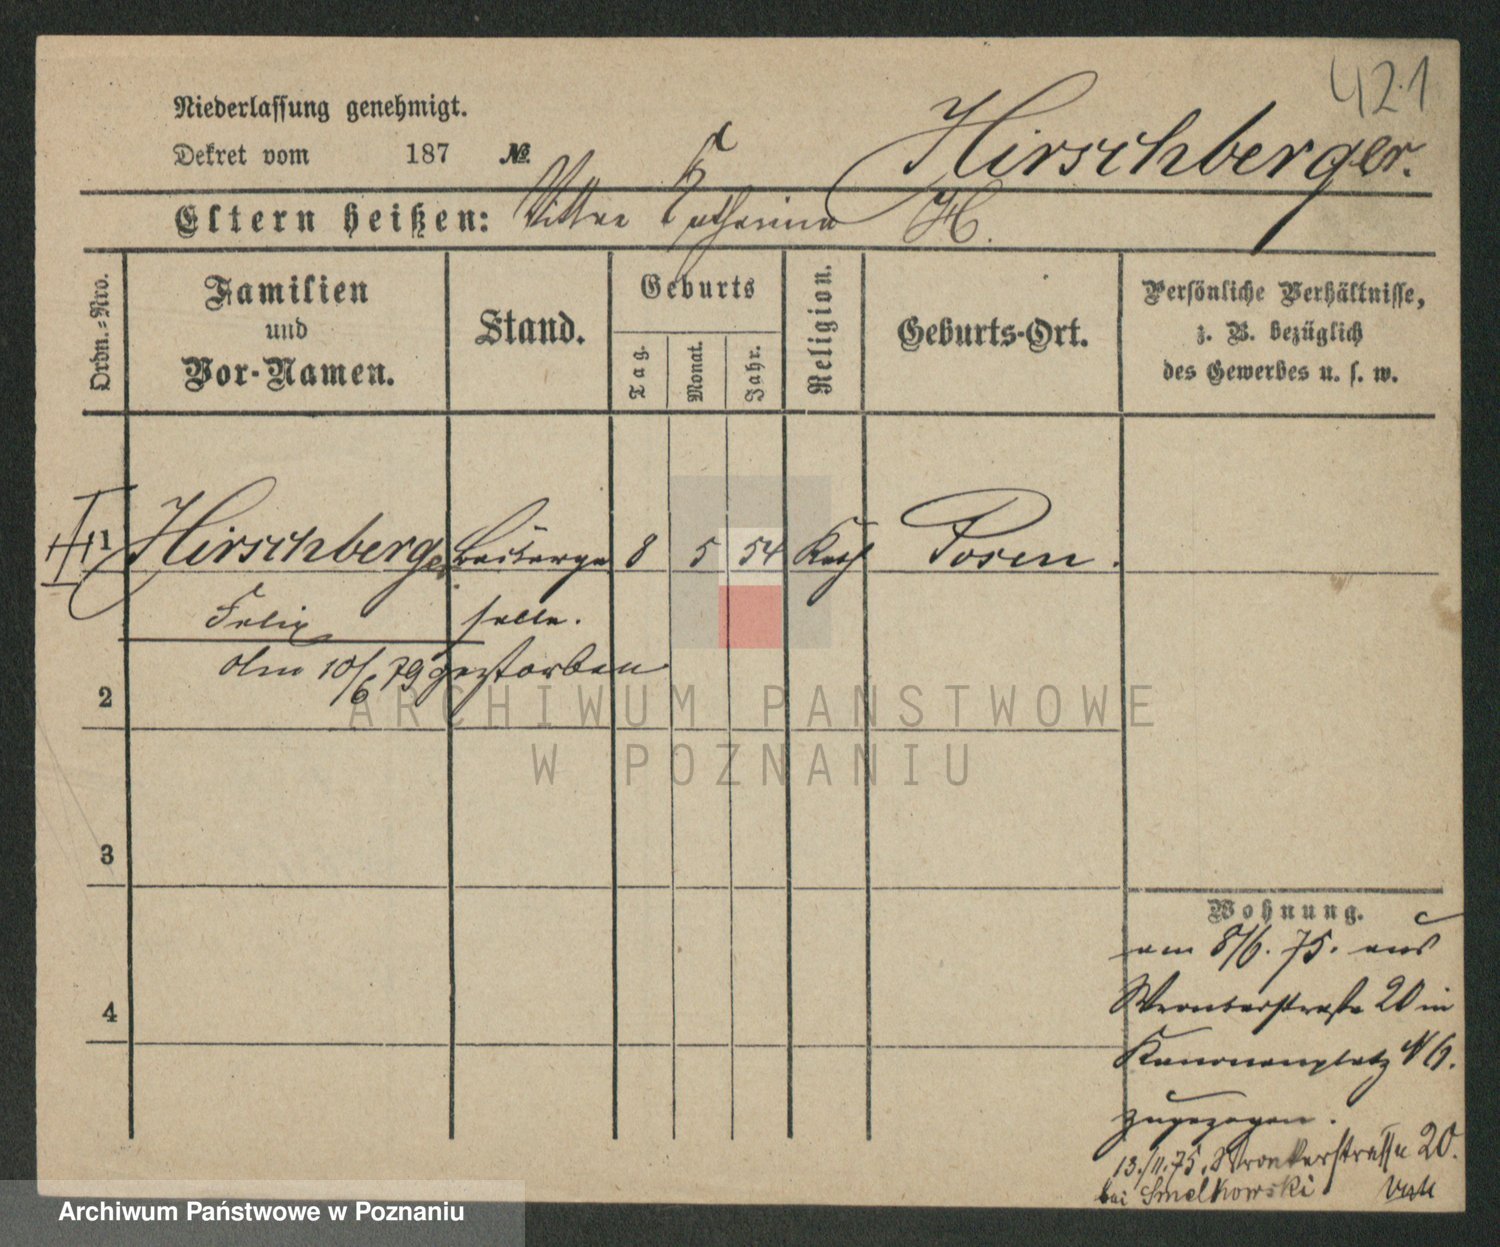 421
Niederlassung genehmigt.
Dekret vom 187 №
Hirschberger.
Eltern heißen: Katharina H.
Ordn.-Nro.
Familien
und
Vor-Namen.
Stand.
Geburts
Tag.
Monat.
Jahr.
Religion.
Geburts-Ort.
Persönliche Verhältnisse,
z. B. bezüglich
des Gewerbes u. s. w.
1 Hirschberger 8 5 54 Kath Posen.
Felix selle.
2 Am 10/6 79 gestorben
3
4
Wohnung.
am 8/6. 75. aus
Wronkerstraße 20 in
Kanonenplatz № 9.
zugezogen.
13./11.75. Wronkerstrasse 20.
bei Smelkowski
ARCHIWUM PAŃSTWOWE
W POZNANIU
Archiwum Państwowe w Poznaniu